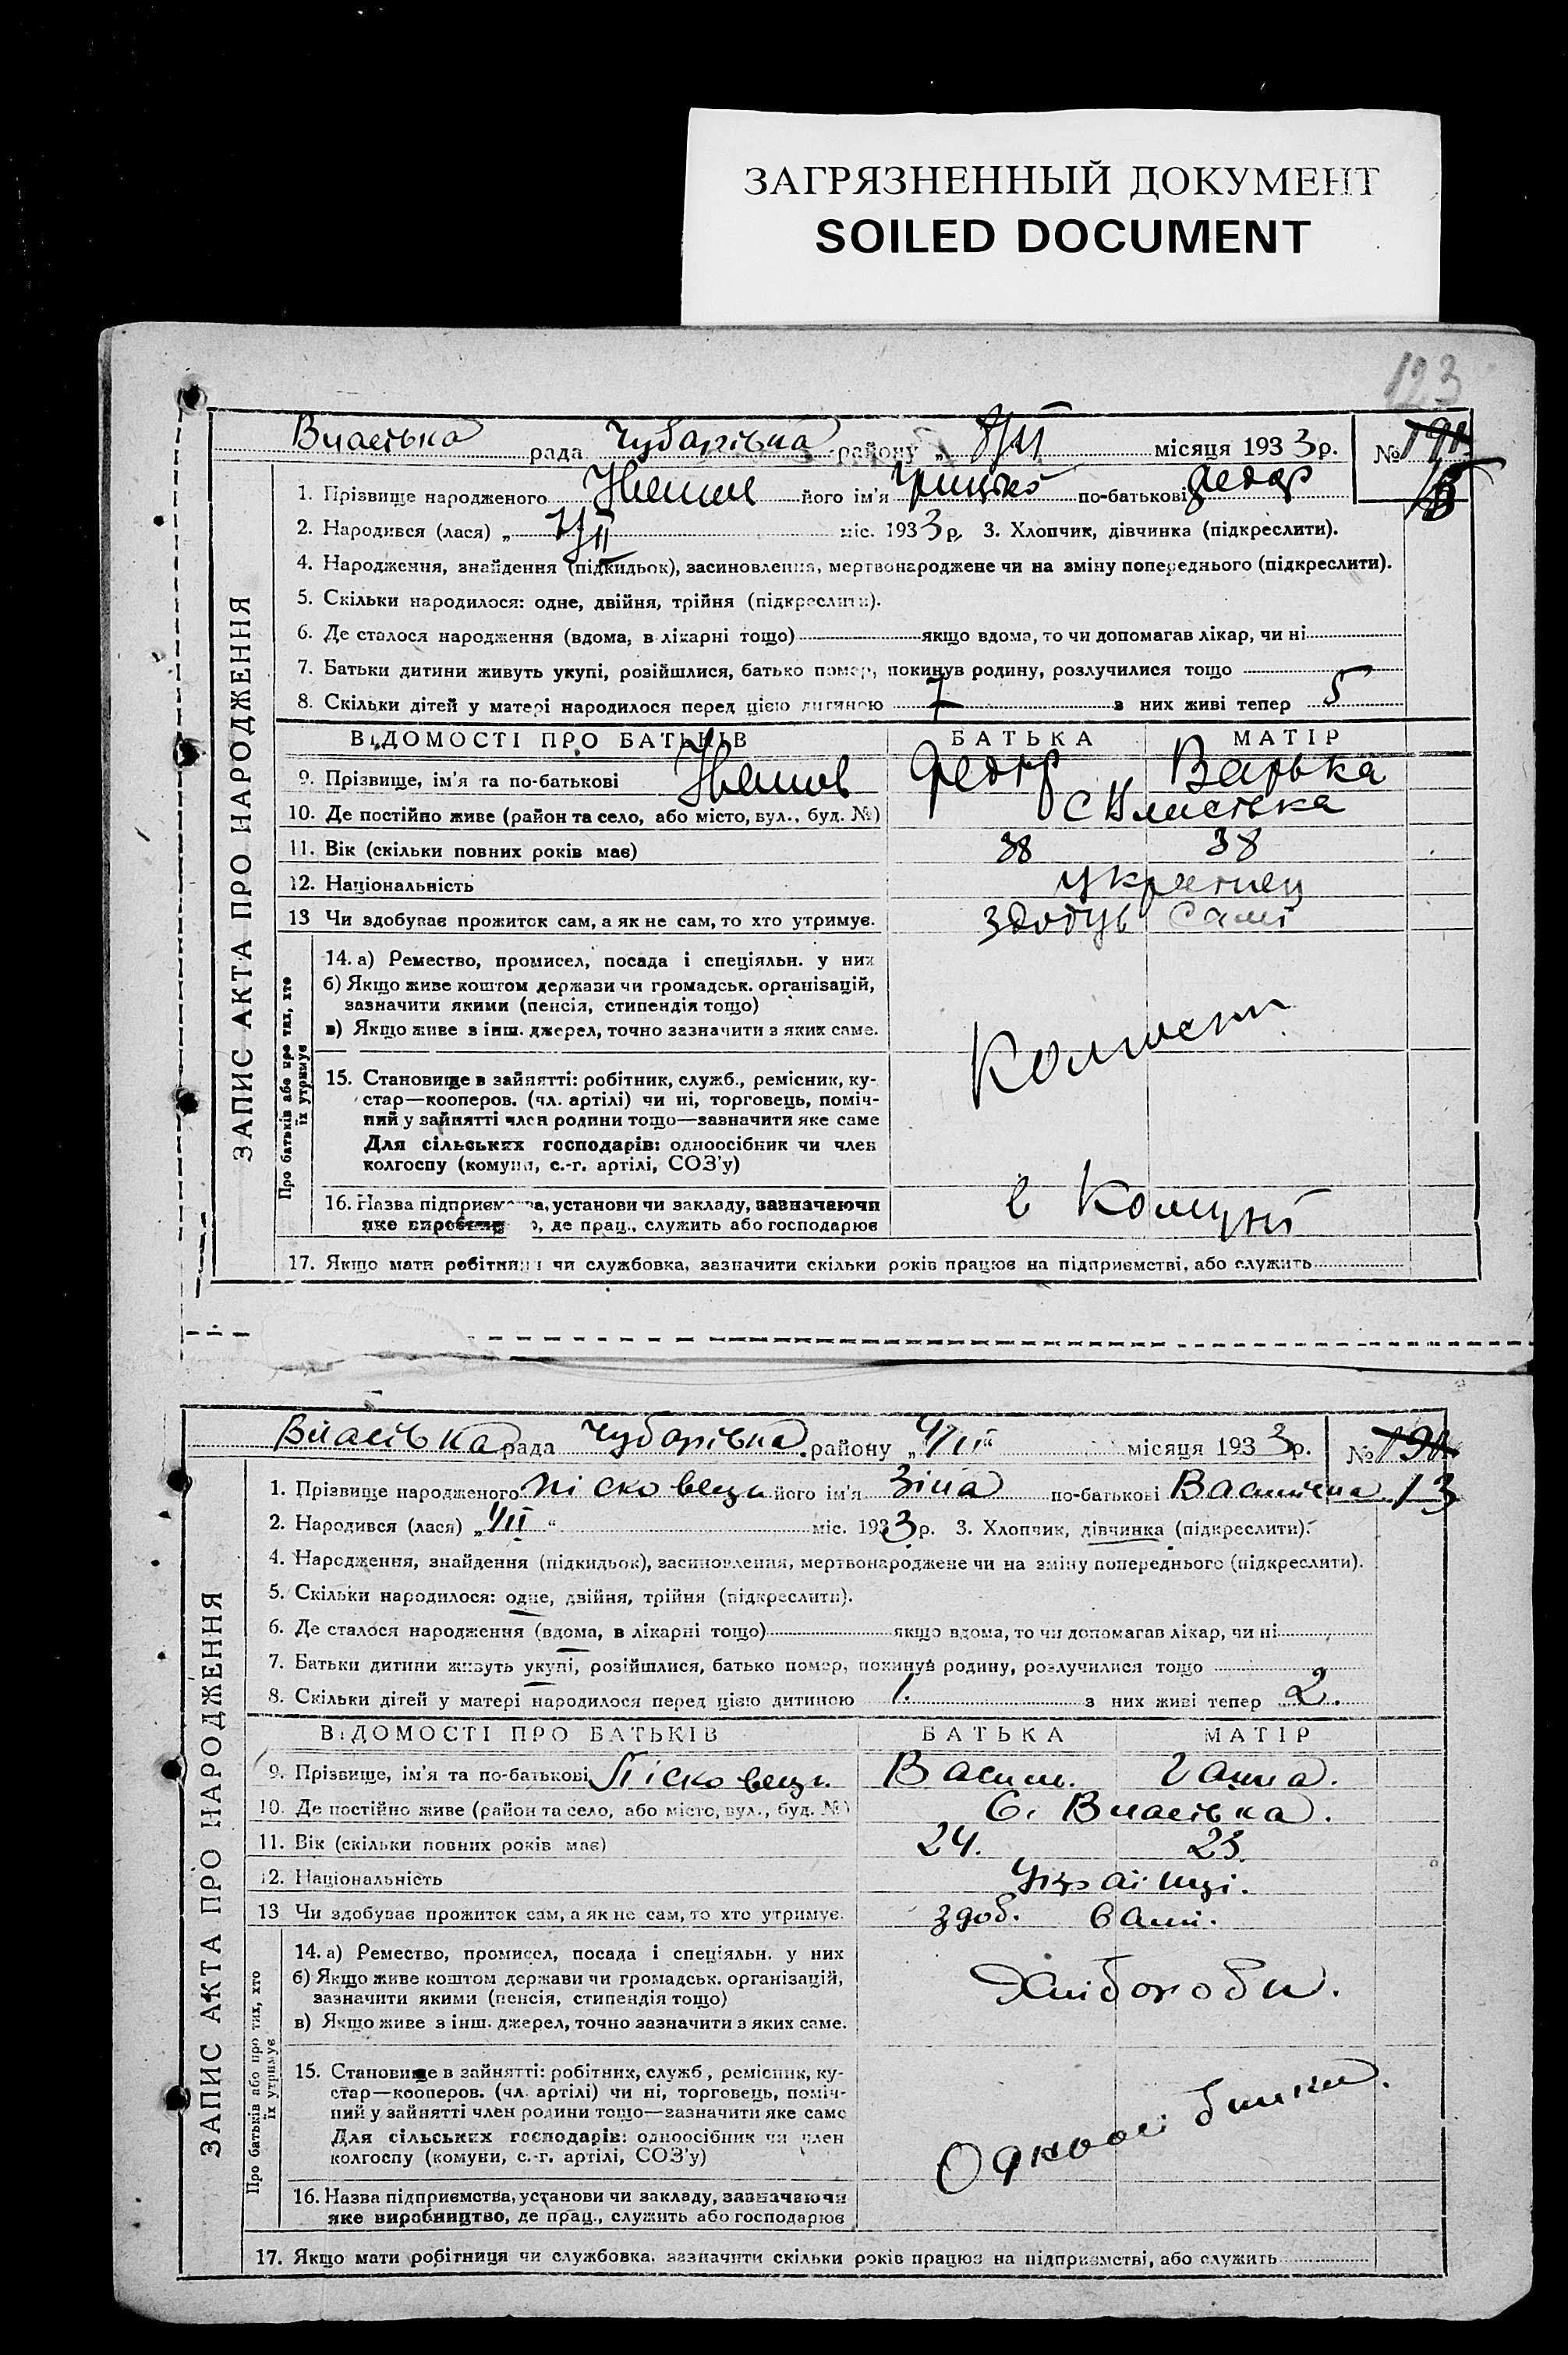 ЗАГРЯЗНЕННЫЙ ДОКУМЕНТ
SOILED DOCUMENT
123
Власівка рада Чубарівка району „ місяця 1933 р. №
1. Прізвище народженого його ім'я Грицько по-батькові Федор
2. Народився (лася) „ міс. 1933 р. 3. Хлопчик, дівчинка (підкреслити).
4. Народження, знайдення (підкидьок), засиновлення, мертвонароджене чи на зміну попереднього (підкреслити).
5. Скільки народилося: одне, двійня, трійня (підкреслити).
6. Де сталося народження (вдома, в лікарні тощо) якщо вдома, то чи допомагав лікар, чи ні
7. Батьки дитини живуть укупі, розійшлися, батько помер, покинув родину, розлучилися тощо
8. Скільки дітей у матері народилося перед цією дитиною 7 з них живі тепер 5
ВІДОМОСТІ ПРО БАТЬКІВ БАТЬКА МАТІР
9. Прізвище, ім'я та по-батькові Федор Варька
10. Де постійно живе (район та село, або місто, вул., буд. №) С Власівка
11. Вік (скільки повних років має) 38 38
12. Національність українец
13 Чи здобуває прожиток сам, а як не сам, то хто утримує. здобув самі
ЗАПИС АКТА ПРО НАРОДЖЕННЯ
Про батьків або про тих, хто їх утримує
14. а) Ремество, промисел, посада і спеціяльн. у них
б) Якщо живе коштом держави чи громадськ. організацій,
зазначити якими (пенсія, стипендія тощо)
в) Якщо живе з інш. джерел, точно зазначити з яких саме.
15. Становище в зайнятті: робітник, служб., ремісник, ку-
стар—кооперов. (чл. артілі) чи ні, торговець, поміч-
ний у зайнятті член родини тощо—зазначити яке саме
Для сільських господарів: одноосібник чи член
колгоспу (комуни, с.-г. артілі, СОЗ'у)
16. Назва підприємства, установи чи закладу, зазначаючи
яке виробництво, де прац., служить або господарює
в Комуні
17. Якщо мати робітниця чи службовка, зазначити скільки років працює на підприємстві, або служить
Власівка рада Чубарівка району „ “ місяця 1933 р. №
1. Прізвище народженого Пісковець його ім'я Зіна по-батькові 13
2. Народився (лася) „ “ міс. 1933 р. 3. Хлопчик, дівчинка (підкреслити).
4. Народження, знайдення (підкидьок), засиновлення, мертвонароджене чи на зміну попереднього (підкреслити).
5. Скільки народилося: одне, двійня, трійня (підкреслити).
6. Де сталося народження (вдома, в лікарні тощо) якщо вдома, то чи допомагав лікар, чи ні
7. Батьки дитини живуть укупі, розійшлися, батько помер, покинув родину, розлучилися тощо
8. Скільки дітей у матері народилося перед цією дитиною 1. з них живі тепер 2.
ВІДОМОСТІ ПРО БАТЬКІВ БАТЬКА МАТІР
9. Прізвище, ім'я та по-батькові Пісковець. Васил. Ганна.
10. Де постійно живе (район та село, або місто, вул., буд. №) С. Власівка.
11. Вік (скільки повних років має) 24. 23.
12. Національність Українці.
13 Чи здобуває прожиток сам, а як не сам, то хто утримує. здоб. самі.
ЗАПИС АКТА ПРО НАРОДЖЕННЯ
Про батьків або про тих, хто їх утримує
14. а) Ремество, промисел, посада і спеціяльн. у них
б) Якщо живе коштом держави чи громадськ. організацій,
зазначити якими (пенсія, стипендія тощо)
в) Якщо живе з інш. джерел, точно зазначити з яких саме.
Хлібороби.
15. Становище в зайнятті: робітник, служб., ремісник, ку-
стар—кооперов. (чл. артілі) чи ні, торговець, поміч-
ний у зайнятті член родини тощо—зазначити яке саме
Для сільських господарів: одноосібник чи член
колгоспу (комуни, с.-г. артілі, СОЗ'у)
Одноосібники.
16. Назва підприємства, установи чи закладу, зазначаючи
яке виробництво, де прац., служить або господарює
17. Якщо мати робітниця чи службовка, зазначити скільки років працює на підприємстві, або служить